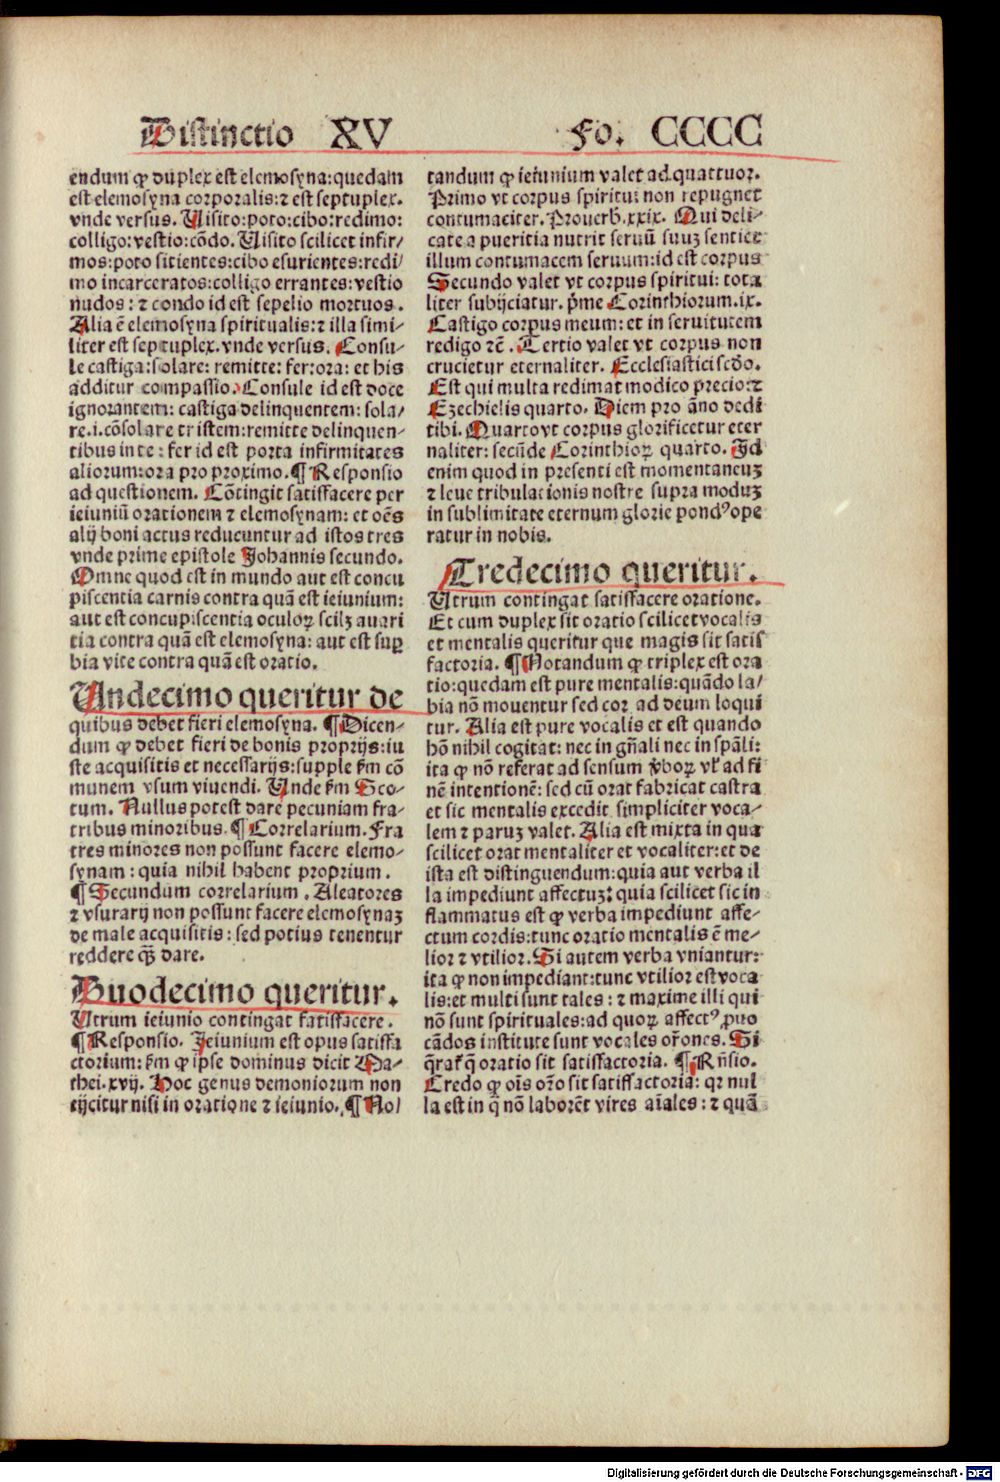 Distinctio XV Fo. CCCC
endum ꝙ duplex est elemosyna:quedam
est elemosyna corporalis:⁊ est septuplex.
vnde versus. Uisito:poto:cibo:redimo:
colligo:vestio:cōdo. Uisito scilicet infir/
mos:poto sitientes:cibo esurientes:redi/
mo incarceratos:colligo errantes:vestio
nudos:⁊ condo id est sepelio mortuos.
Alia ē elemosyna spiritualis:⁊ illa simi-
liter est septuplex.vnde versus. Consu-
le castiga:solare:remitte:fer:ora:et his
additur compassio. Consule id est doce
ignorantem: castiga delinquentem: sola/
re.i.cōsolare tristem:remitte delinquen-
tibus in te: fer id est porta infirmitates
aliorum:ora pro proximo. ¶ Responsio
ad questionem. Cōtingit satisfacere per
ieiuniū orationem ⁊ elemosynam: et oēs
alij boni actus reducuntur ad istos tres
vnde prime epistole Johannis secundo.
Omne quod est in mundo aut est concu
piscentia carnis contra quā est ieiunium:
aut est concupiscentia oculoꝝ scilꝫ auari
tia contra quā est elemosyna: aut est suꝑ
bia vite contra quā est oratio.
Undecimo queritur de
quibus debet fieri elemosyna. ¶ Dicen-
dum ꝙ debet fieri de bonis proprijs:iu
ste acquisitis et necessarijs:supple ẜm cō
munem vsum viuendi. Unde ẜm Sco-
tum. Nullus potest dare pecuniam fra-
tribus minoribus. ¶ Correlarium. Fra
tres minores non possunt facere elemo-
synam: quia nihil habent proprium.
¶ Secundum correlarium. Aleatores
⁊ vsurarij non possunt facere elemosynaꝫ
de male acquisitis: sed potius tenentur
reddere q̄ꝫ dare.
Duodecimo queritur.
Utrum ieiunio contingat satisfacere.
¶ Responsio. Ieiunium est opus satisfa
ctorium: ẜm ꝙ ipse dominus dicit Ma-
thei.xvij. Hoc genus demoniorum non
eijcitur nisi in oratione ⁊ ieiunio. ¶ No/
tandum ꝙ ieiunium valet ad quattuoꝛ.
Primo vt corpus spiritui non repugnet
contumaciter. Prouerb.xxix. Qui deli-
cate a pueritia nutrit seruū suuꝫ sentiet
illum contumacem seruum:id est corpus
Secundo valet vt corpus spiritui: tota
liter subijciatur. p̄me Corinthiorum.ix.
Castigo corpus meum: et in seruitutem
redigo ⁊c̄. Tertio valet vt corpus non
crucietur eternaliter. Ecclesiastici scd̄o.
Est qui multa redimat modico precio:⁊
Ezechielis quarto. Diem pro āno dedi
tibi. Quarto vt corpus glorificetur eter
naliter: secūde Corinthioꝝ quarto. Id
enim quod in presenti est momentaneuꝫ
⁊ leue tribulationis nostre supra moduꝫ
in sublimitate eternum glorie pondꝰ ope
ratur in nobis.
Tredecimo queritur.
Utrum contingat satisfacere oratione.
Et cum duplex sit oratio scilicet vocalis
et mentalis queritur que magis sit satis
factoria. ¶ Notandum ꝙ triplex est ora
tio:quedam est pure mentalis:quādo la/
bia nō mouentur sed coꝛ ad deum loqui
tur. Alia est pure vocalis et est quando
hō nihil cogitat: nec in gn̄ali nec in spāli:
ita ꝙ nō referat ad sensum v̄boꝝ vl̓ ad fi
nē intentionē: sed cū orat fabricat castra
et sic mentalis excedit simpliciter voca-
lem ⁊ paruꝫ valet. Alia est mixta in qua
scilicet orat mentaliter et vocaliter:et de
ista est distinguendum:quia aut verba il
la impediunt affectuꝫ: quia scilicet sic in
flammatus est ꝙ verba impediunt affe-
ctum cordis:tunc oratio mentalis ē me-
lior ⁊ vtilior. Si autem verba vniantur:
ita ꝙ non impediant:tunc vtilior est voca
lis:et multi sunt tales: ⁊ maxime illi qui
nō sunt spirituales:ad quoꝝ affectꝰ ꝓuo
cādos institute sunt vocales or̄ones. Si
q̄rat̓ q̄ oratio sit satisfactoria. ¶ Rn̄sio.
Credo ꝙ oīs or̄o sit satisfactoria: qꝛ nul
la est in q̄ nō laborēt vires aīales: ⁊ quā
Digitalisierung gefördert durch die Deutsche Forschungsgemeinschaft - DFG